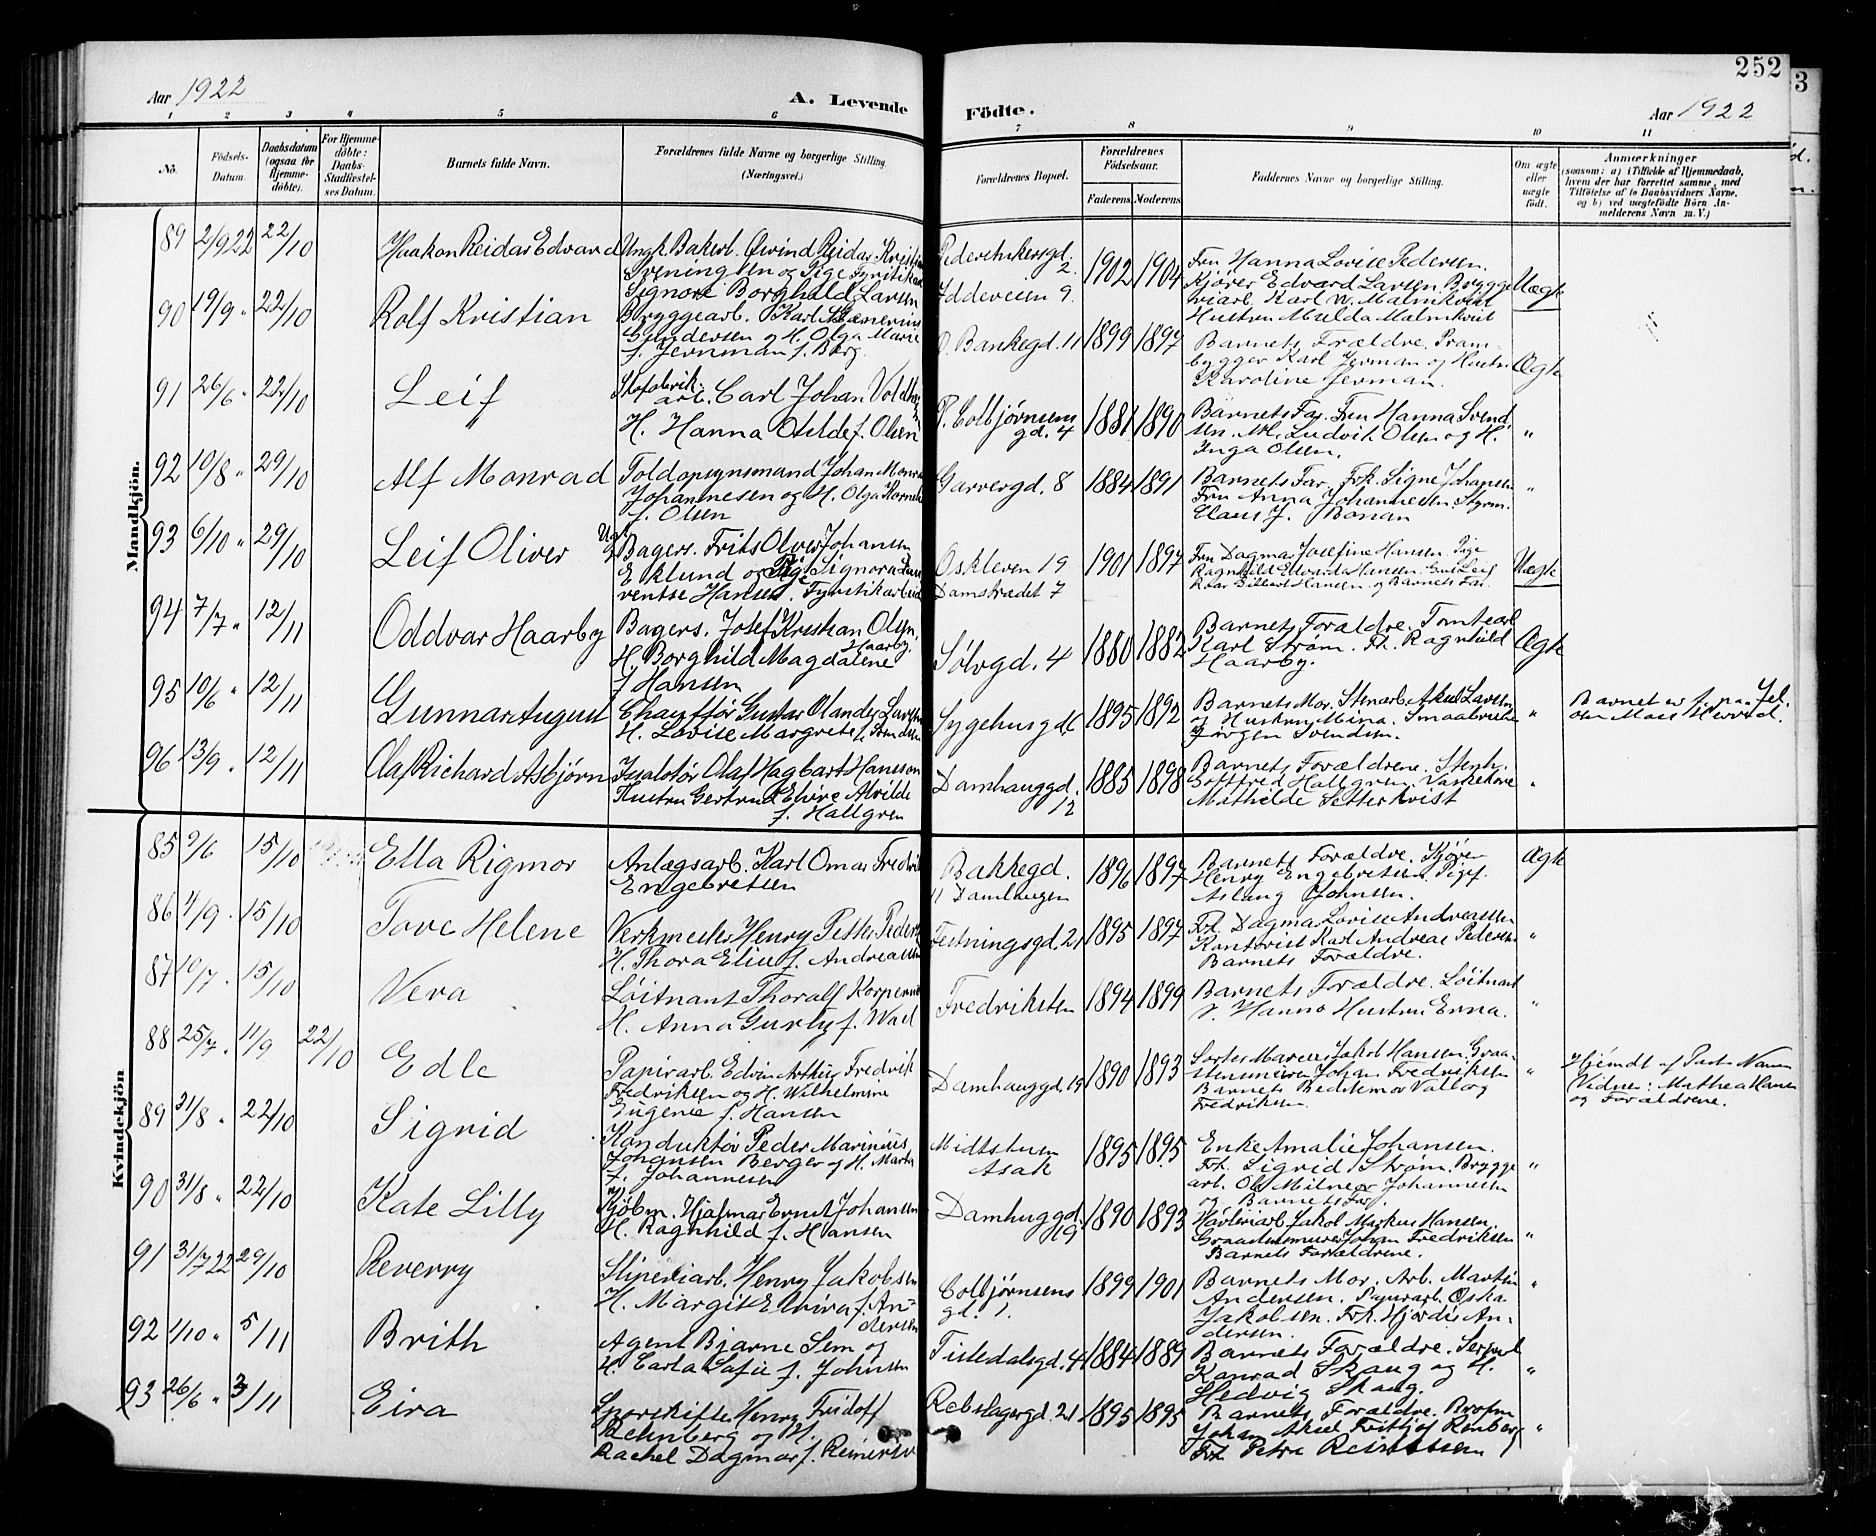 252
3
Aar 1922
A. Levende
Fødte.
Aar 1922
1 2 3 4 5 6 7 8 9 10 11
No.
Födsels-Datum.
Daabsdatum (ogsaa for Hjemmedöbte).
For Hjemmedöbte: Daabs-Stadfæstelses Datum.
Barnets fulde Navn.
Forældrenes fulde Navne og borgerlige Stilling.
(Næringsvei.)
Forældrenes Bopæl.
Forældrenes Födselsaar.
Faderens. Moderens
Faddernes Navne og borgerlige Stilling.
Om ægte eller uægte födt.
Anmærkninger
(saasom: a) (Tilfælde af Hjemmedaab, hvem der har forrettet samme, med Tilföielse af to Daabsvidners Navne, og b) ved uægtefödte Börn Anmelderens Navn m. V.)
Mandkjön.
89 2/9 22 22/10 Haakon Reidar Edvard
Ungk. Bakerl. Øivind Reidar
Sveningsen og Pige
Signora Borghild Larsen
2.
Iddeveien 9.
1902 1904
Fru Hanna Lovise Pedersen.
Kjører Edvard Larsen. Brygge
riarb. Karl W. Malmkvist
Hustru Mulda Malmkvist
Uægte
90 19/9 " 22/10 Rolf Kristian
Bryggearb. Karl
Gundersen og H. Olga Marie
f. Jernman f. Berg.
Ø. Bankegd. 11 1899 1897
Barnets Forældre. Pram-
bygger Karl Jerman og Hustru
Karoline Jerman.
Ægte
91 26/6 " 22/10 Leif
Skofabrik.
arb. Carl Johan
H. Hanna Otilde f. Olsen
P. Colbjørnsens
gd. 4
1881 1890
Barnets Far. Fru Hanna Svend
sen. Ludvik Olsen og H.
Inga Olsen.
"
92 10/8 " 29/10 Alf Monrad
Toldopsynsmand Johan Monrad
Johannesen og H. Olga
f. Olsen
Garvergd. 8 1884 1891
Barnets Far. Frk. Signe Johansen
Fru Anna Johannessen. Styrm.
Claus J. Bonan
"
93 6/10 " 29/10 Leif Oliver
Bagers. Frits Oliver Johansen
Eklund og Pige Signora Lau
rentse Hansen. Fyrstikarbeid
Oskleven 19
Damstrædet 7
1901 1897
Fru Dagmar Josefine Hansen. Pige
Ragnhild Edvarda Hansen. Leif
Roar Gilbert Hansen og Barnets Far.
Uægte
94 7/7 " 12/11 Oddvar Haarby
Bagers. Josef Kristian Olsen
Haarby.
H. Borghild Magdalene
f. Hansen
Sølvgd. 4 1880 1882
Barnets Forældre. Tomtearb
Karl Strøm. Fr. Ragnhild
Haarby.
Ægte
95 10/6 " 12/11 Gunnar August
Chauffør Gustav Olander Larsen
H. Lovise Margrete f. Svendsen
Sygehusgd. 6 1895 1892
Barnets Mor. Stenarb. Aksel Larsen
og Hustru Mina. Smaabruker
Jørgen Svendsen.
"
Barnet er f. paa
96 13/9 " 12/11 Olaf Richard Asbjørn
Isolatør Olaf Hagbart Hansson
Hustru Gertrud Elvire Alvilde
f. Hallgren
Damhauggd.
12
1885 1898
Barnets Forældre. Stenh.
Gottfred Hallgren. Vaskekone
Mathilde Setterkvist
"
Kvindekjön
85 2/6 15/10 Ella Rigmor
Anlægsarb. Karl Omar Fredrik
Engebretsen
Bakkegd.
11 Damhaugen
1896 1897
Barnets Forældre. Kjører
Henry Engebretsen. Pige
Aslaug Johnsen.
Ægte
86 4/9 " 15/10 Tove Helene
Verkmester Henry Petter Pedersen
H. Thora Elise f. Andreassen
Festningsgd. 21 1895 1897
Fr. Dagmar Lovise Andreassen
Kontorist Karl Andreas Pedersen
Barnets Forældre.
"
87 10/7 " 15/10 Vera
Løitnant Thoralf
H. Anna Gurly f. Wad
Fredriksten 1894 1899
Barnets Forældre. Løitnant
V. Hanno Hustru Enna.
"
88 25/7 " 11/9 22/10 Edle
Papirarb. Edvin Arthur Fredrik
Fredriksen og H. Wilhelmine
Eugenie f. Hansen
Damhauggd. 19 1890 1893
Sorter Marcus Jakob Hansen. Graa-
stensmurer Johan Fredriksen
Barnets Bedstemor Valborg
Fredriksen.
"
Hjemdt. af
Vidner: Mathea Hansen
og Forældrene.
89 31/8 " 22/10 Sigrid
Konduktør Peder Marinius
Johansen Berger og H. Marta
f. Johannesen
Midtstuen
Asak
1895 1895
Enke Amalie Johansen.
Frk. Sigrid Strøm. Brygge
arb. Ole Milner Johannesen
og Barnets Far.
"
90 31/8 " 22/10 Kate Lilly
Kjøbm. Hjalmar Ernst Johansen
H. Ragnhild f. Hansen
Damhuggd.
19
1890 1893
Høvleriarb. Jakob Markus Hansen.
Graastensmurer Johan Fredriksen
Barnets Forældrene.
"
91 31/7 22 29/10 Reverry
Sliperiarb. Henry Jakobsen
H. Margit Elvira f. An-
dersen
Colbjørnsens
gd. 1.
1899 1901
Barnets Mor. Arb. Martin
Andersen. Papirarb. Oskar
Jakobsen. Frk. Hjørdis An-
dersen.
"
92 1/10 " 5/11 Brith
Agent Bjarne Sem og
H. Carla Sofie f. Johnsen
Tistedalsgd. 4 1884 1889
Barnets Forældre. Sersjant
Konrad Skaug og H.
Hedvig Skaug.
"
93 26/6 " 3/11 Eira
Sporskifter Henry Fridolf
Rehnberg og H.
Rachel Dagmar f. Reinertsen
Rebslagergd. 21 1895 1895
Barnets Forældre.
Johan Aksel Fritjof Renberg
Frk. Petra Reinertsen
"